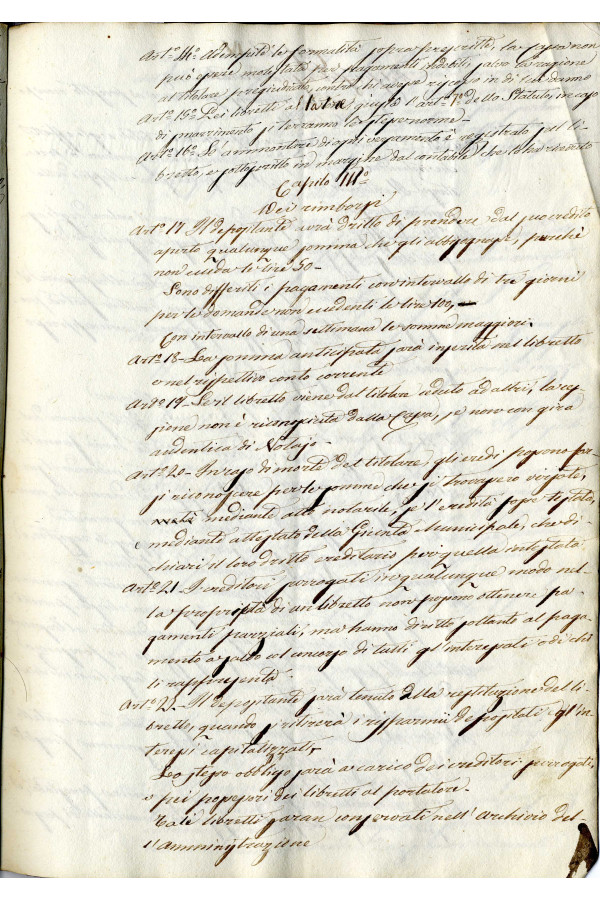 Art.° 14.° Adempite le formalità sopra prescritte, la Cassa non
può essere molestata per pagamenti indebiti, salvo la ragione
al titolare pregiudicato contro chi avesse riscosso in di lui danno
Art.° 15.° Pei libretti al latore giusta l'art.° 7.° dello Statuto, in caso
di smarrimento si terranno le stesse norme.
Art.° 16.° Se l'ammontare di ogni versamento è registrato sul li-
bretto, e sottoscritto in margine dal contabile che lo ha ricevuto
Capitolo III.°
Dei rimborsi
Art.° 17. Il depositante avrà dritto di prendere dal suo credito
aperto qualunque somma che gli abbisognasse, purchè
non ecceda le lire 50-
Sono differiti i pagamenti con intervallo di tre giorni
per le domande non eccedenti le lire 100,
Con intervallo di una settimana le somme maggiori.
Art.° 18- La somma anticipata sarà inserita nel libretto
e nel rispettivo conto corrente
Art.° 19- Se il libretto viene dal titolare ceduto ad altri, la ces-
sione non è riconosciuta dalla Cassa, se non con gira
autentica di Notajo.
Art.° 20- In caso di morte del titolare, gli eredi possono far-
si riconoscere per le somme che si trovassero versate,
mediante atto notarile, se l'eredità fosse testata,
e mediante attestato della Giunta Municipale, che di-
chiari il loro dritto ereditario per quella intestata.
Art.° 21- I creditori surrogati in qualunque modo nel-
la proprietà di un libretto non possono ottenere pa-
gamenti parziali, ma hanno diritto soltanto al paga-
mento a saldo col concorso di tutti gl'interessati o di chi
li rappresenta.
Art.° 22- Il depositante sarà tenuto alla restituzione del li-
bretto, quando ritirerà i risparmii depositati e gl'in-
teressi capitalizzati,
Lo stesso obbligo sarà a carico dei creditori surrogati,
e pei possessori dei libretti al portatore.
Tali libretti saran conservati nell'Archivio del-
l'Amministrazione